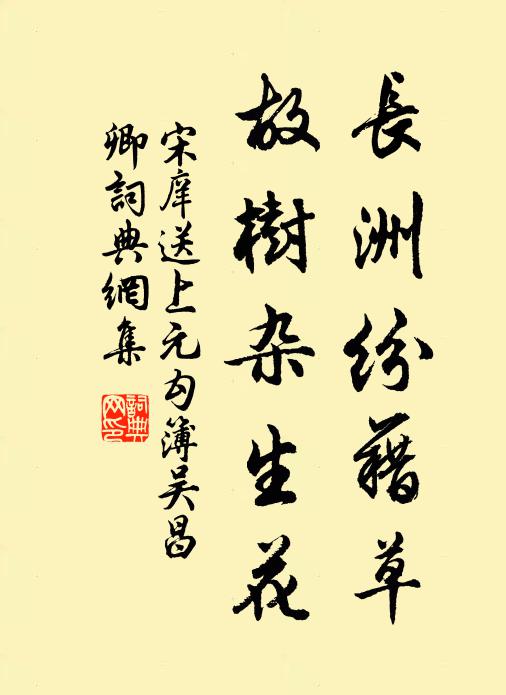 長洲紛藉草
故樹杂生花
宋庠送上元勾簿吴昌
卿詞典網集
詞典网印